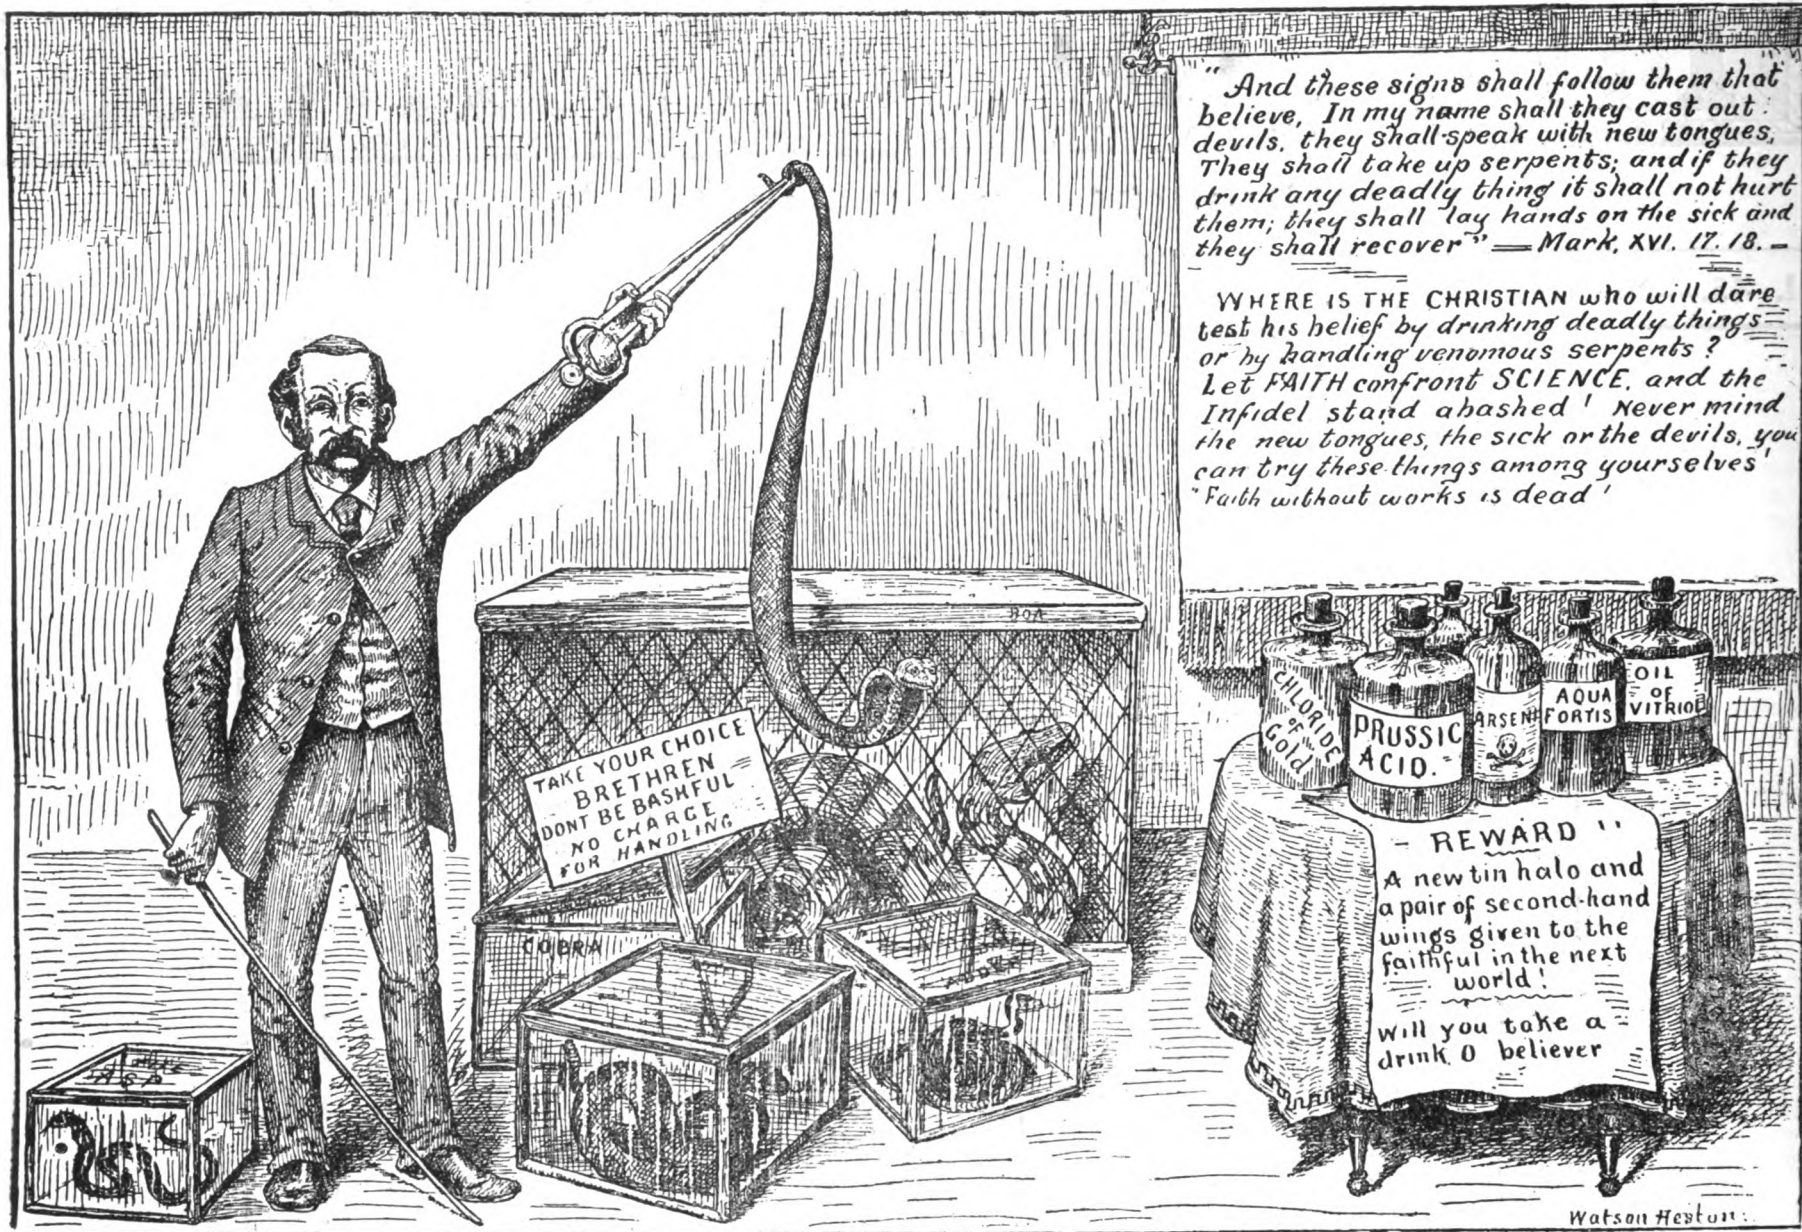 "And these signs shall follow them that
believe, In my name shall they cast out
devils, they shall speak with new tongues,
They shall take up serpents; and if they
drink any deadly thing it shall not hurt
them; they shall lay hands on the sick and
they shall recover" = Mark, XVI. 17. 18. -
WHERE IS THE CHRISTIAN who will dare
test his belief by drinking deadly things
or by handling venomous serpents?
Let FAITH confront SCIENCE, and the
Infidel stand abashed! Never mind
the new tongues, the sick or the devils, you
can try these things among yourselves!
"Faith without works is dead!
BOA
TAKE YOUR CHOICE
BRETHREN
DONT BE BASHFUL
NO CHARGE
FOR HANDLING
COBRA
ADDER
ASP
CHLORIDE
OF
Gold
PRUSSIC
ACID.
ARSENI
AQUA
FORTIS
OIL
OF
VITRIOL
- REWARD "
A new tin halo and
a pair of second-hand
wings given to the
faithful in the next
world!
Will you take a
drink, O believer
Watson Heston.